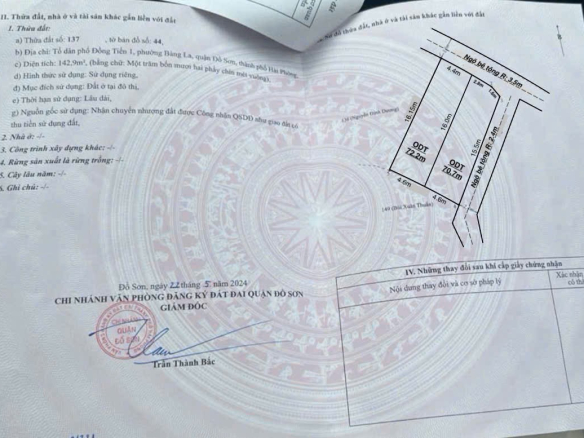 II. Thửa đất, nhà ở và tài sản khác gắn liền với đất
1. Thửa đất:
a) Thửa đất số: 137 , tờ bản đồ số: 44,
b) Địa chỉ: Tổ dân phố Đồng Tiến 1, phường Bàng La, quận Đồ Sơn, thành phố Hải Phòng,
c) Diện tích: 142,9m², (bằng chữ: Một trăm bốn mươi hai phẩy chín mét vuông),
d) Hình thức sử dụng: Sử dụng riêng,
đ) Mục đích sử dụng: Đất ở tại đô thị,
e) Thời hạn sử dụng: Lâu dài,
g) Nguồn gốc sử dụng: Nhận chuyển nhượng đất được Công nhận QSDĐ như giao đất có
thu tiền sử dụng đất,
2. Nhà ở: -/-
3. Công trình xây dựng khác: -/-
4. Rừng sản xuất là rừng trồng: -/-
5. Cây lâu năm: -/-
6. Ghi chú: -/-
Đồ Sơn, ngày 22 tháng 5 năm 2024
CHI NHÁNH VĂN PHÒNG ĐĂNG KÝ ĐẤT ĐAI QUẬN ĐỒ SƠN
GIÁM ĐỐC
CHI NHÁNH
QUẬN
ĐỒ SƠN
Trần Thành Bắc
thửa đất, nhà ở và tài sản khác gắn liền với đất
B
Ngõ bê tông R: 3.5m
4.4m
16.15m
16.0m
15.5m
Ngõ bê tông R: 2.4m
ODT
72.2m
ODT
70.7m
4.6m
4.6m
140 (Bùi Xuân Thuần)
IV. Những thay đổi sau khi cấp giấy chứng nhận
Nội dung thay đổi và cơ sở pháp lý
Xác nhận